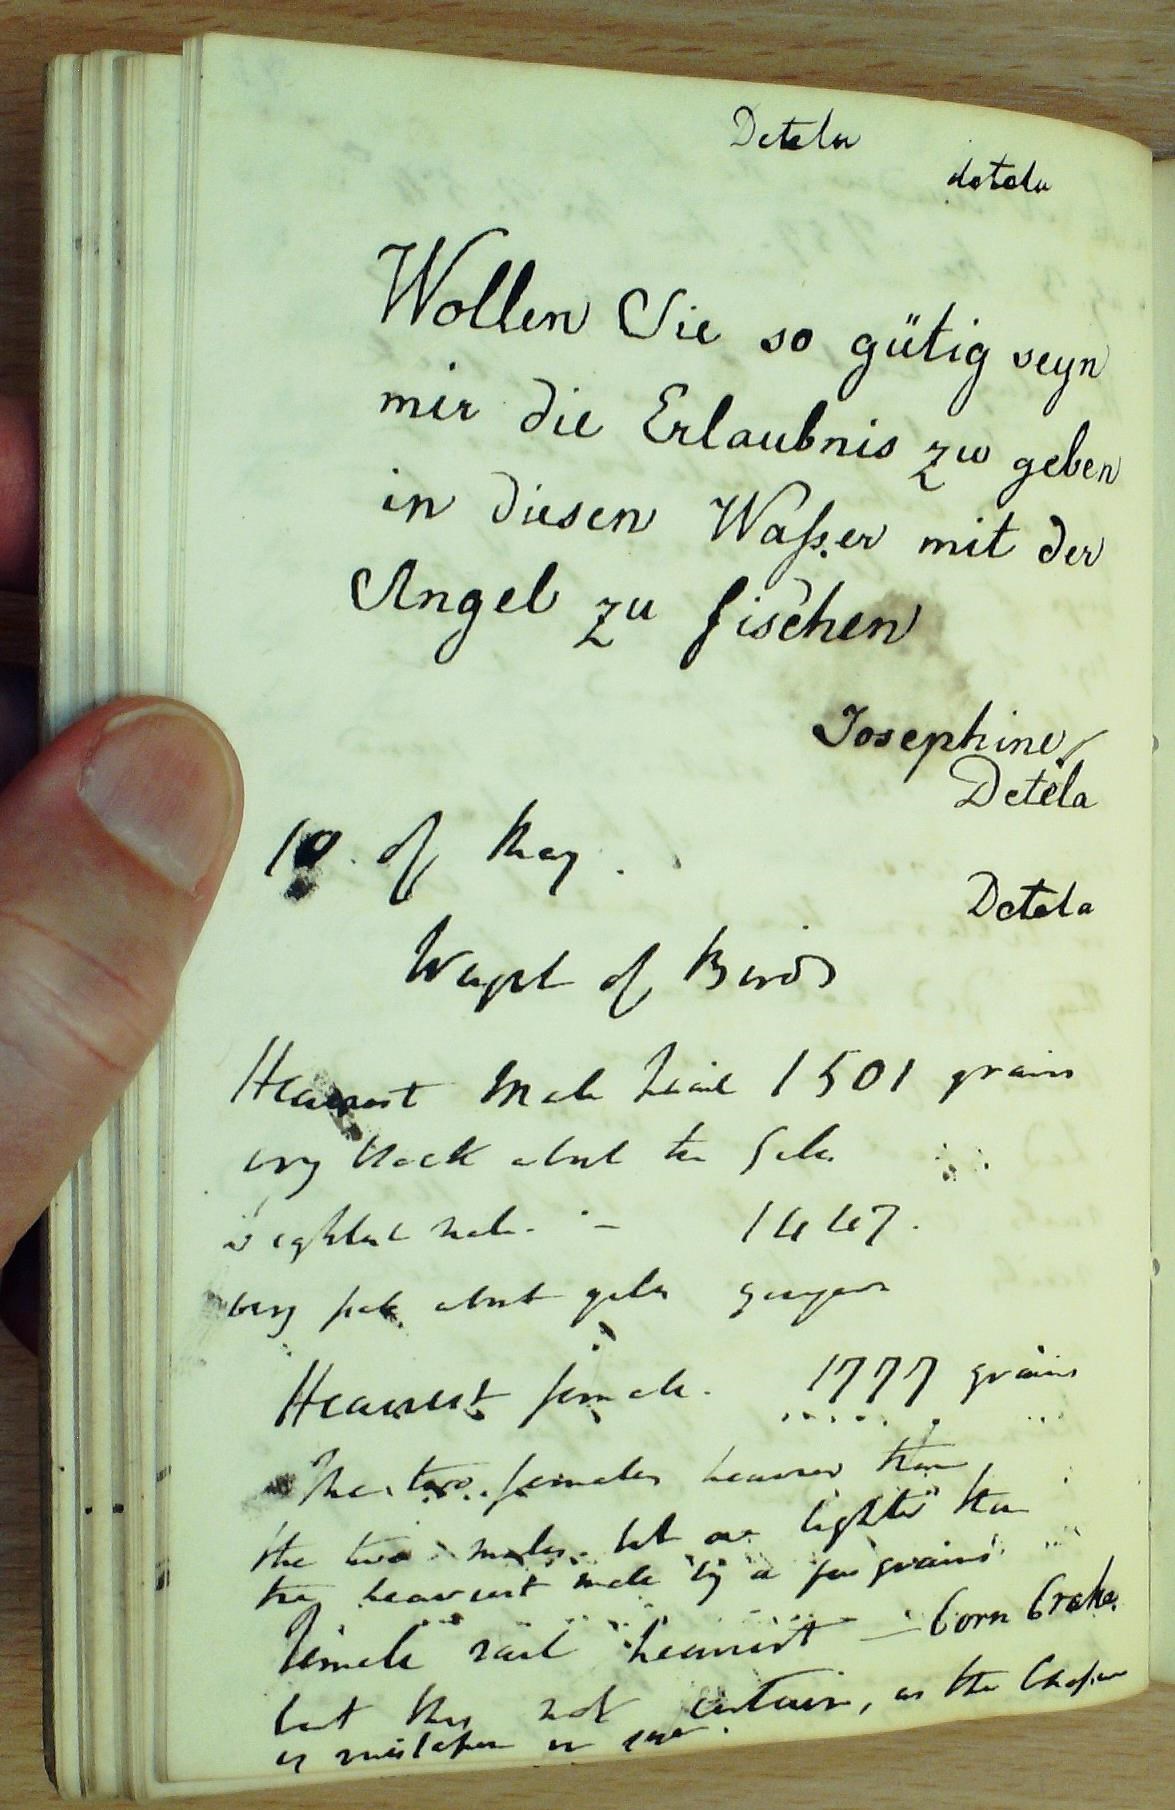 Detela
detela
Wollen Sie so gütig seyn
mir die Erlaubnis zu geben
in diesen Waßer mit der
Angel zu fischen
Josephine
Detela
10 of May.
Detela
Weight of Birds
Heaviest Male 1501 grains
very black about the Gills
1447.
very pale about gills
Heaviest female. 1777 grains
The two females heavier than
the two males. but one lighter than
the heaviest male by a few grains.
female rail heaviest – Corn Crake.
but this not certain, as the
is mistaken in sex.